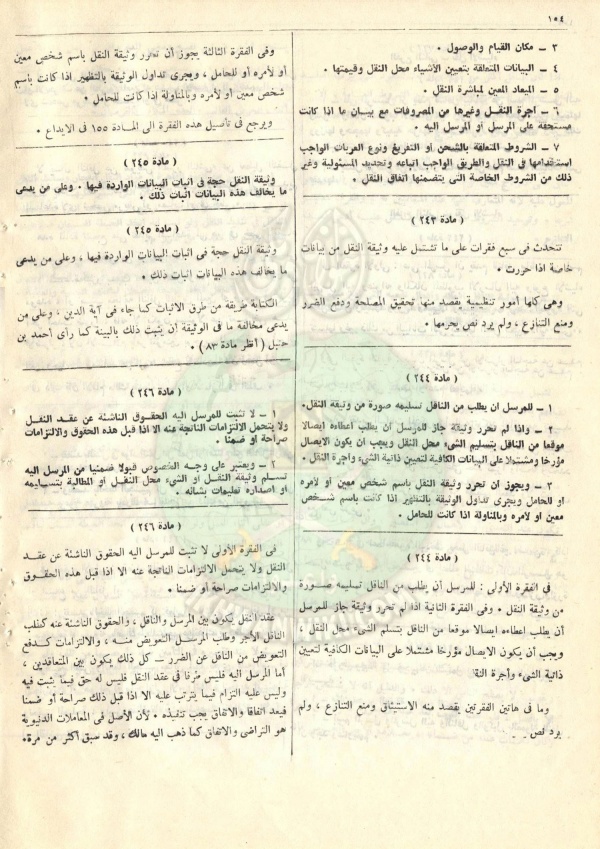 ١٥٤
٣ ـ مكان القيام والوصول .
٤ ـ البيانات المتعلقة بتعيين الأشياء محل النقل وقيمتها .
٥ ـ الميعاد المعين لمباشرة النقل .
٦ ـ اجرة النقل وغيرها من المصروفات مع بيان ما اذا كانت
مستحقة على المرسل او المرسل اليه .
٧ ـ الشروط المتعلقة بالشحن أو التفريغ ونوع العربات الواجب
استخدامها في النقل والطريق الواجب اتباعه وتحديد المسئولية وغير
ذلك من الشروط الخاصة التى يتضمنها اتفاق النقل .
( مادة ٢٤٣ )
تتحدث فى سبع فقرات على ما تشتمل عليه وثيقة النقل من بيانات
خاصة اذا حررت .
وهى كلها أمور تنظيمية يقصد منها تحقيق المصلحة ودفع الضرر
ومنع التنازع ، ولم يرد نص يحرمها .
( مادة ٢٤٤ )
١ ـ للمرسل ان يطلب من الناقل تسليمه صورة من وثيقة النقل.
٢ ـ واذا لم تحرر وثيقة جاز للمرسل أن يطلب اعطاءه ايصالا
موقعا من الناقل بتسليم الشىء محل النقل ويجب ان يكون الايصال
مؤرخا ومشتملا على البيانات الكافية لتعيين ذاتية الشىء واجرة النقل .
٣ ـ ويجوز ان تحرر وثيقة النقل باسم شخص معين أو لامره
او للحامل ويجرى تداول الوثيقة بالتظهير اذا كانت باسم شخص
معين او لامره وبالمناولة اذا كانت للحامل .
( مادة ٢٤٤ )
فى الفقرة الأولى : للمرسل أن يطلب من الناقل تسليمه صورة
من وثيقة النقل . وفى الفقرة الثانية اذا لم تحرر وثيقة جاز للمرسل
أن يطلب اعطاءه ايصالا موقعا من الناقل بتسلم الشىء محل النقل ،
ويجب أن يكون الايصال مؤرخا مشتملا على البيانات الكافية لتعيين
ذاتية الشىء وأجرة النقـ
وما فى هاتين الفقرتين يقصد منه الاستيثاق ومنع التنازع ، ولم
يرد نص
وفى الفقرة الثالثة يجوز أن تحرر وثيقة النقل باسم شخص معين
أو لأمره أو للحامل ، ويجرى تداول الوثيقة بالتظهير اذا كانت بأسم
شخص معين أو لأمره وبالمناولة إذا كانت للحامل .
ويرجع فى تأصيل هذه الفقرة الى المادة ١٥٥ فى الايداع .
( مادة ٢٤٥ )
وثيقة النقل حجة فى اثبات البيانات الواردة فيها . وعلى من يدعى
ما يخالف هذه البيانات اثبات ذلك .
( مادة ٢٤٥ )
وثيقة النقل حجة فى اثبات البيانات الواردة فيها ، وعلى من يدعى
ما يخالف هذه البيانات اثبات ذلك .
الكتابة طريقة من طرق الاثبات كما جاء فى آية الدين ، وعلى من
يدعى مخالفة ما فى الوثيقة أن يثبت ذلك بالبينة كما رأى أحمد بن
حنبل ( أنظر مادة ٨٣ ) .
( مادة ٢٤٦ )
١ ـ لا تثبت للمرسل اليه الحقوق الناشئة عن عقد النقل
ولا يتحمل الالتزامات الناتجة عنه الا اذا قبل هذه الحقوق والالتزامات
صراحة أو ضمنا .
٢ ـ ويعتبر على وجه الخصوص قبولا ضمنيا من المرسل اليه
تسلم وثيقة النقل او الشىء محل النقل او المطالبة بتسليمه
او اصداره تعليمات بشأنه .
( مادة ٢٤٦ )
فى الفقرة الأولى لا تثبت للمرسل اليه الحقوق الناشئة عن عقد
النقل ولا يتحمل الالتزامات الناتجة عنه الا اذا قبل هذه الحقوق
والالتزامات صراحة أو ضمنا .
عقد النقل يكون بين المرسل والناقل ، والحقوق الناشئة عنه كطلب
الناقل الأجر وطلب المرسل التعويض منه ، والالتزامات كدفع
التعويض من الناقل عن الضرر ـ كل ذلك يكون بين المتعاقدين ،
أما المرسل اليه فليس طرفا فى عقد النقل فليس له حق فيما يثبت فيه
وليس عليه التزام فيما يترتب عليه الا اذا قبل ذلك صراحة أو ضمنا
فيعد اتفاقا والاتفاق يجب تنفيذه . لأن الأصل فى المعاملات الدنيوية
هو التراضى والاتفاق كما ذهب اليه مالك ، وقد سبق أكثر من مرة.